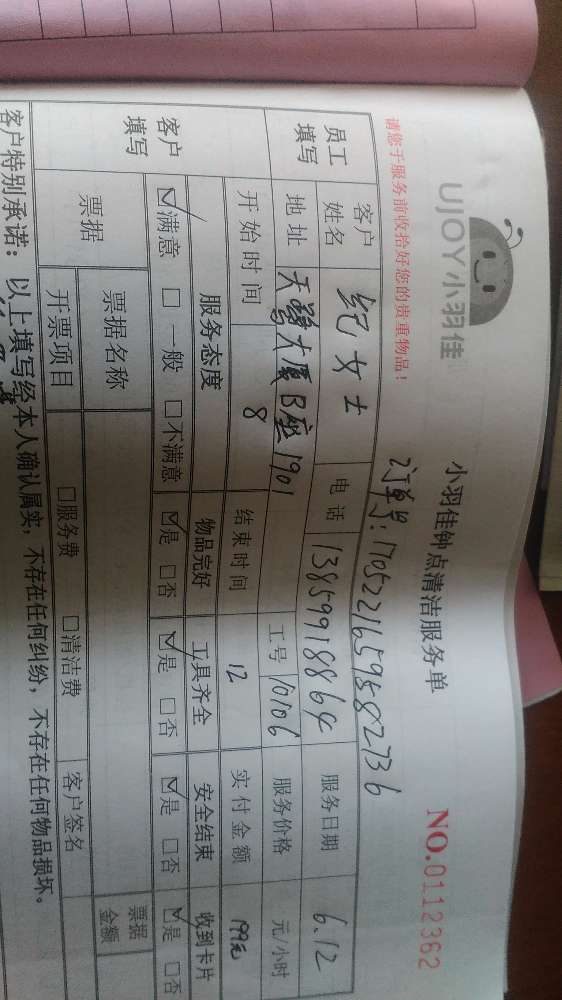 UJOY小羽佳
小羽佳钟点清洁服务单
NO.0112362
请您于服务前收拾好您的贵重物品!
订单号:17052216595882736
员工填写 客户姓名 纪女士 电话 13859918864 服务日期 6.12
地址 天鹭大厦B座1901 工号 10106 服务价格 元/小时
开始时间 8 结束时间 12 实付金额 199元
客户填写 服务态度 物品完好 工具齐全 安全结束 收到卡片
☑满意 □一般 □不满意 ☑是 □否 ☑是 □否 ☑是 □否 ☑是 □否
票据 票据名称 票据金额
开票项目 □服务费 □清洁费 客户签名
客户特别承诺:以上填写经本人确认属实,不存在任何纠纷,不存在任何物品损坏。